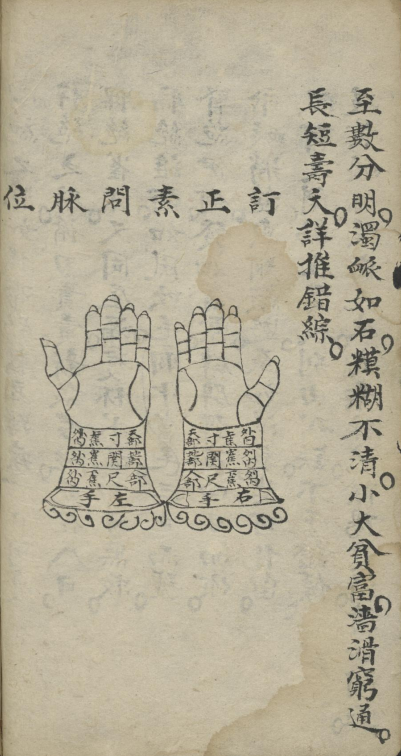 至數分明。濁脈如石。糢糊不清。小大貧富。濇滑窮通。
長短壽夭。詳推錯綜。
訂正素問脉位
寸
關
尺部
右手
寸
關
部尺
左手